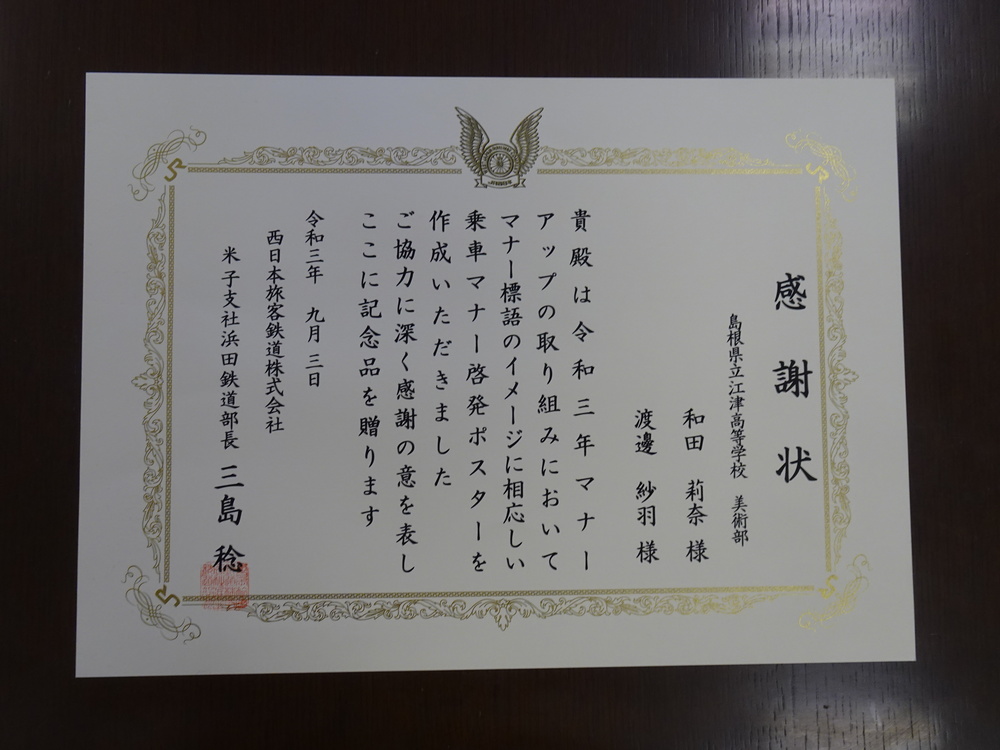 感謝状
島根県立江津高等学校 美術部
和田 莉奈 様
渡邊 紗羽 様
貴殿は令和三年マナー
アップの取り組みにおいて
マナー標語のイメージに相応しい
乗車マナー啓発ポスターを
作成いただきました
ご協力に深く感謝の意を表し
ここに記念品を贈ります
令和三年 九月三日
西日本旅客鉄道株式会社
米子支社浜田鉄道部長 三島 稔